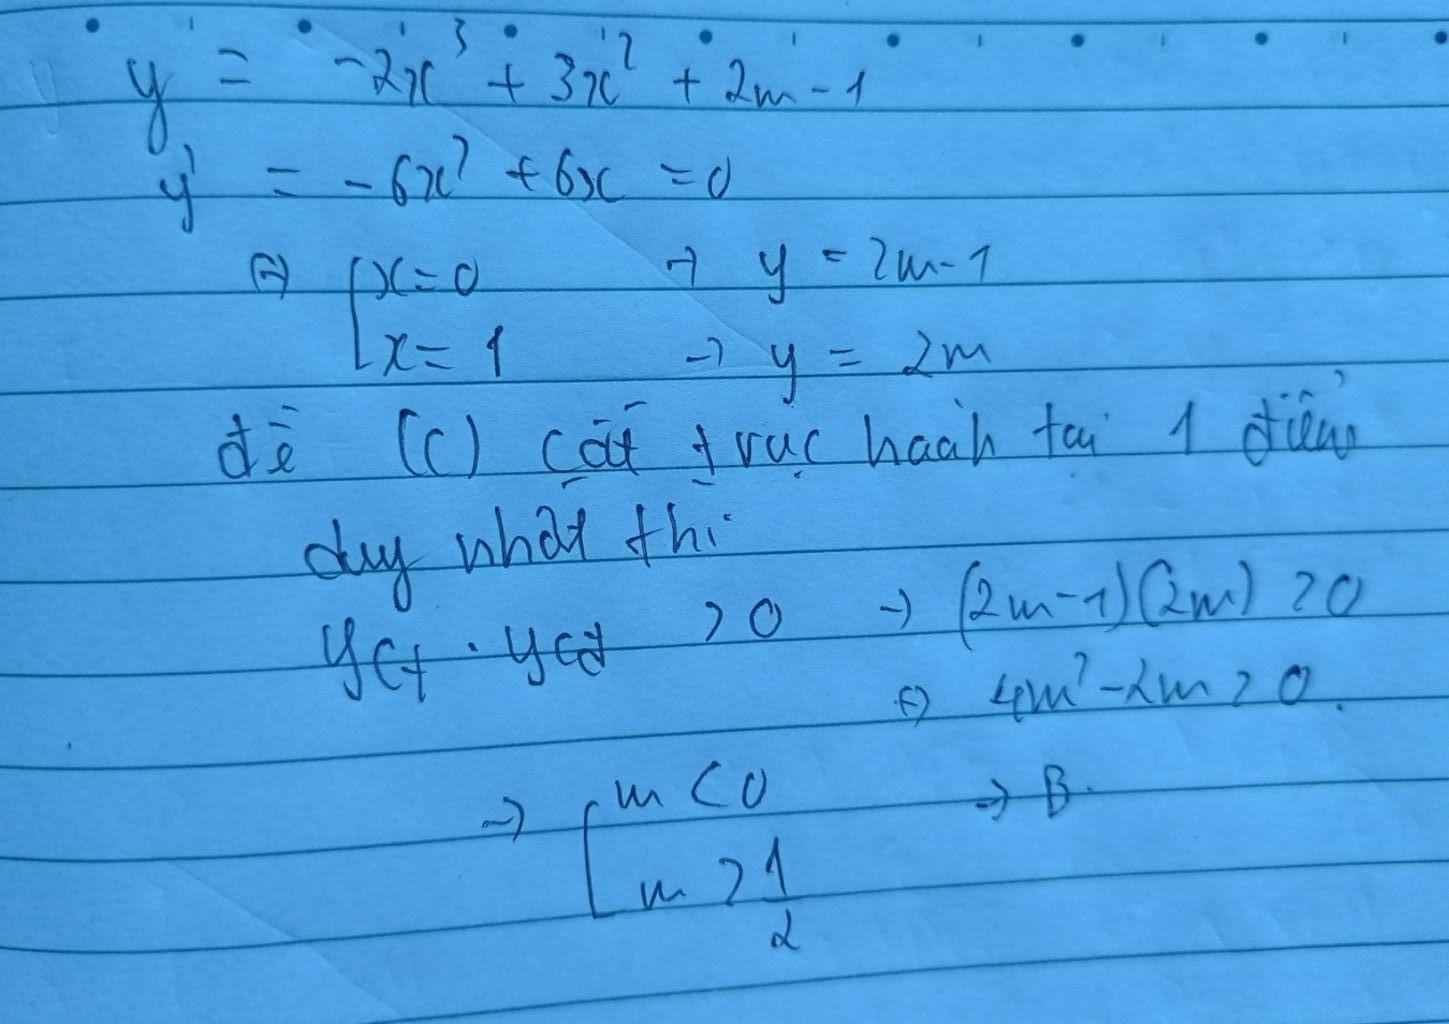 y = -2x³ + 3x² + 2m - 1
y' = -6x² + 6x = 0
⇔ [x = 0 → y = 2m - 1
[x = 1 → y = 2m
để (C) cắt trục hoành tại 1 điểm
duy nhất thì
yct . ycđ > 0 → (2m - 1)(2m) > 0
⇔ 4m² - 2m > 0.
→ [m < 0 → B.
[m > 1/2